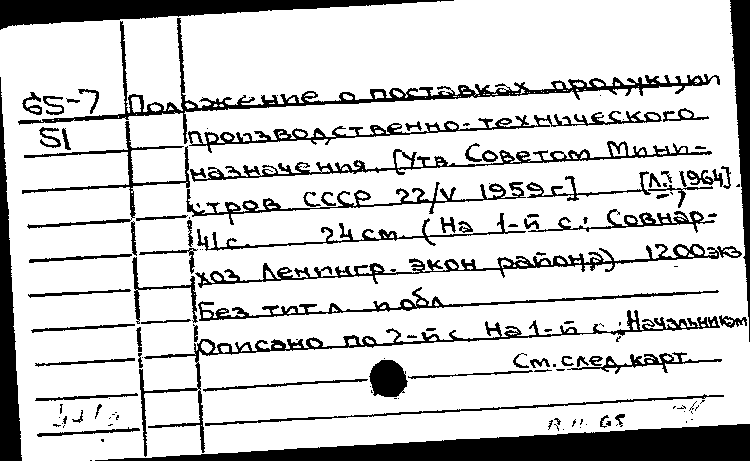 65-7 Положение о поставках продукции
51 производственно-технического
назначения. [Утв. Советом Мини-
стров СССР 22/V 1959 г.] [Л.], [1964].
41 с. 24 см. (На 1-й с.: Совнар-
хоз Ленингр. экон. района) 1200 экз.
Без тит. л. и обл.
Описано по 2-й с. На 1-й с.: Начальникам
См. след. карт.
65